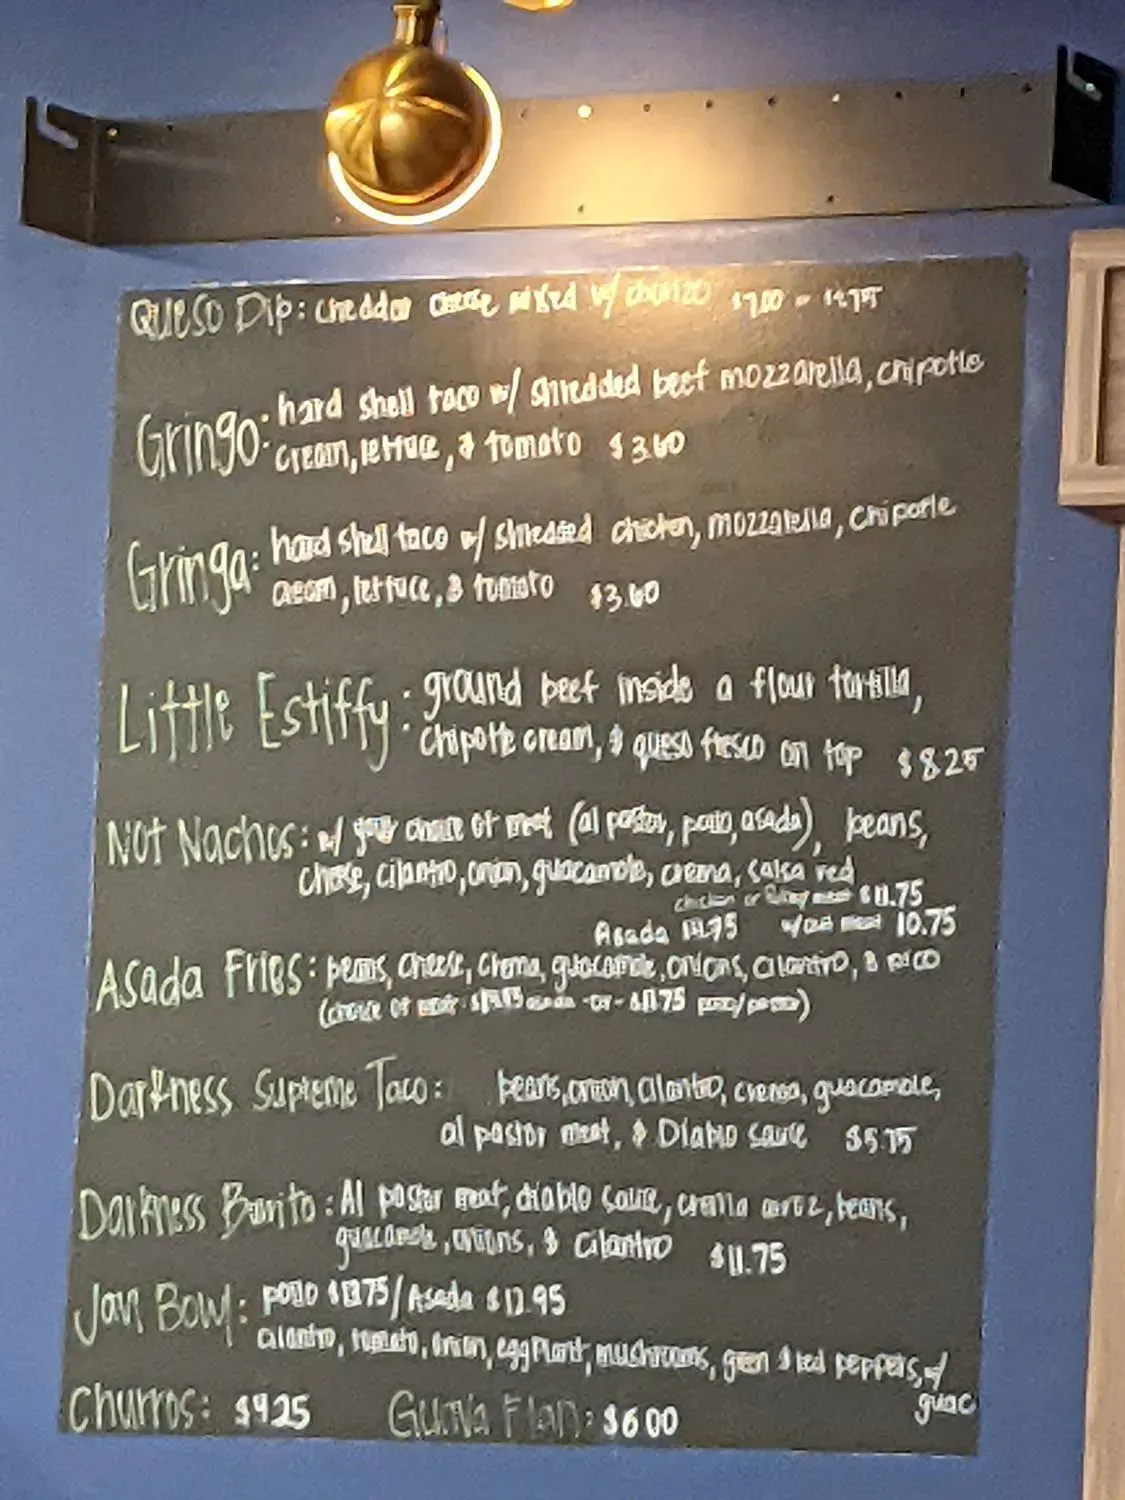 Queso Dip: cheddar cheese mixed w/ chorizo $7.00 -
Gringo: hard shell taco w/ shredded beef mozzarella, chipotle
cream, lettuce, & tomato $3.60
Gringa: hard shell taco w/ shredded chicken, mozzarella, chipotle
cream, lettuce, & tomato $3.60
Little Estiffy: ground beef inside a flour tortilla,
chipotle cream, & queso fresco on top $8.25
Not Nachos: w/ your choice of meat (al pastor, pollo, asada), beans,
cheese, cilantro, onion, guacamole, crema, salsa red
chicken or meat $11.75
Asada w/out meat 10.75
Asada Fries: beans, cheese, crema, guacamole, onions, cilantro, & pico
(choice of meat asada -or- $11.75 pollo/pastor)
Darkness Supreme Taco: beans, onion, cilantro, crema, guacamole,
al pastor meat, & Diablo sauce $5.75
Darkness Burrito: Al pastor meat, diablo sauce, crema arroz, beans,
guacamole, onions, & cilantro $11.75
Javi Bowl: pollo / Asada $12.95
cilantro, tomato, onion, eggplant, mushrooms, green & red peppers, w/
guac
Churros: $9.25 Guava Flan: $6.00